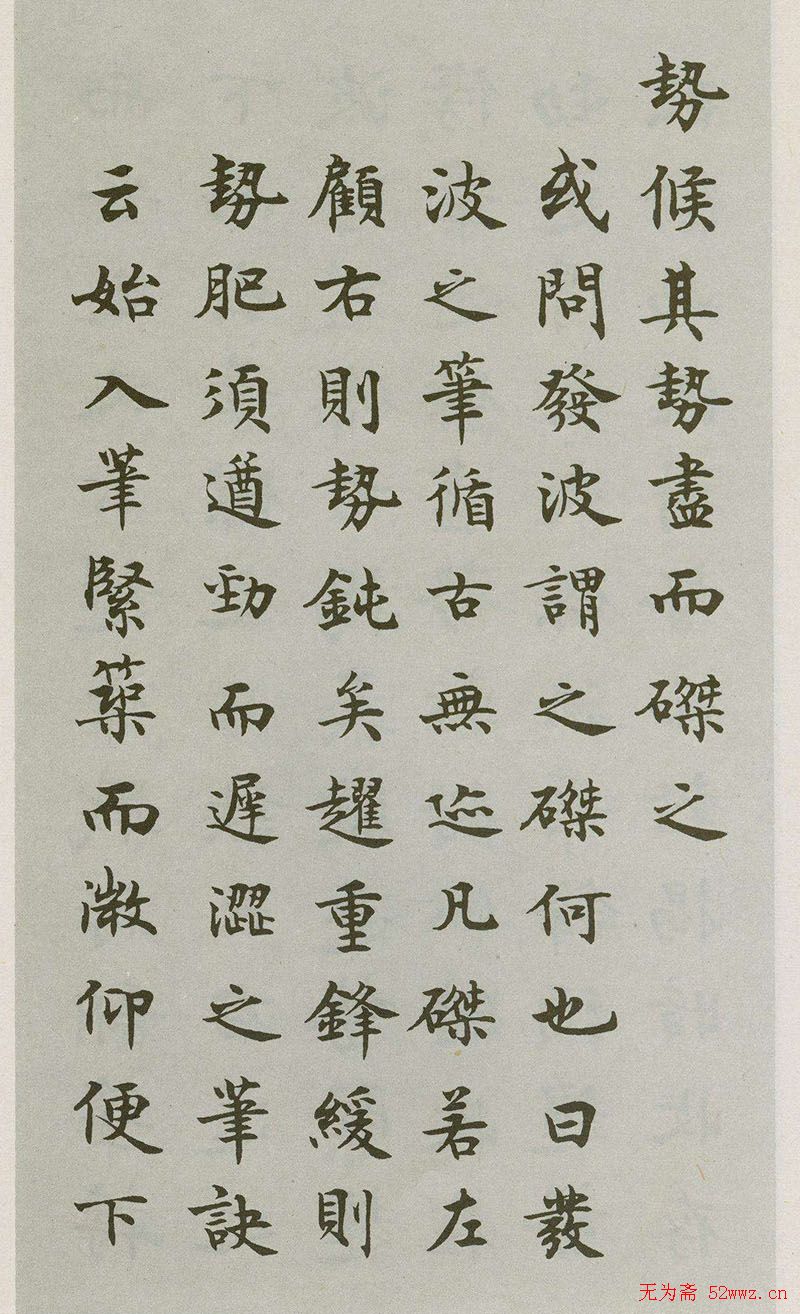 勢候其勢盡而磔之
或問發波謂之磔何也曰發
波之筆循古無迹凡磔若左
顧右則勢鈍矣趯重鋒緩則
勢肥須遒勁而遲澀之筆訣
云始入筆緊築而微仰便下
无为斋 52wwz.cn